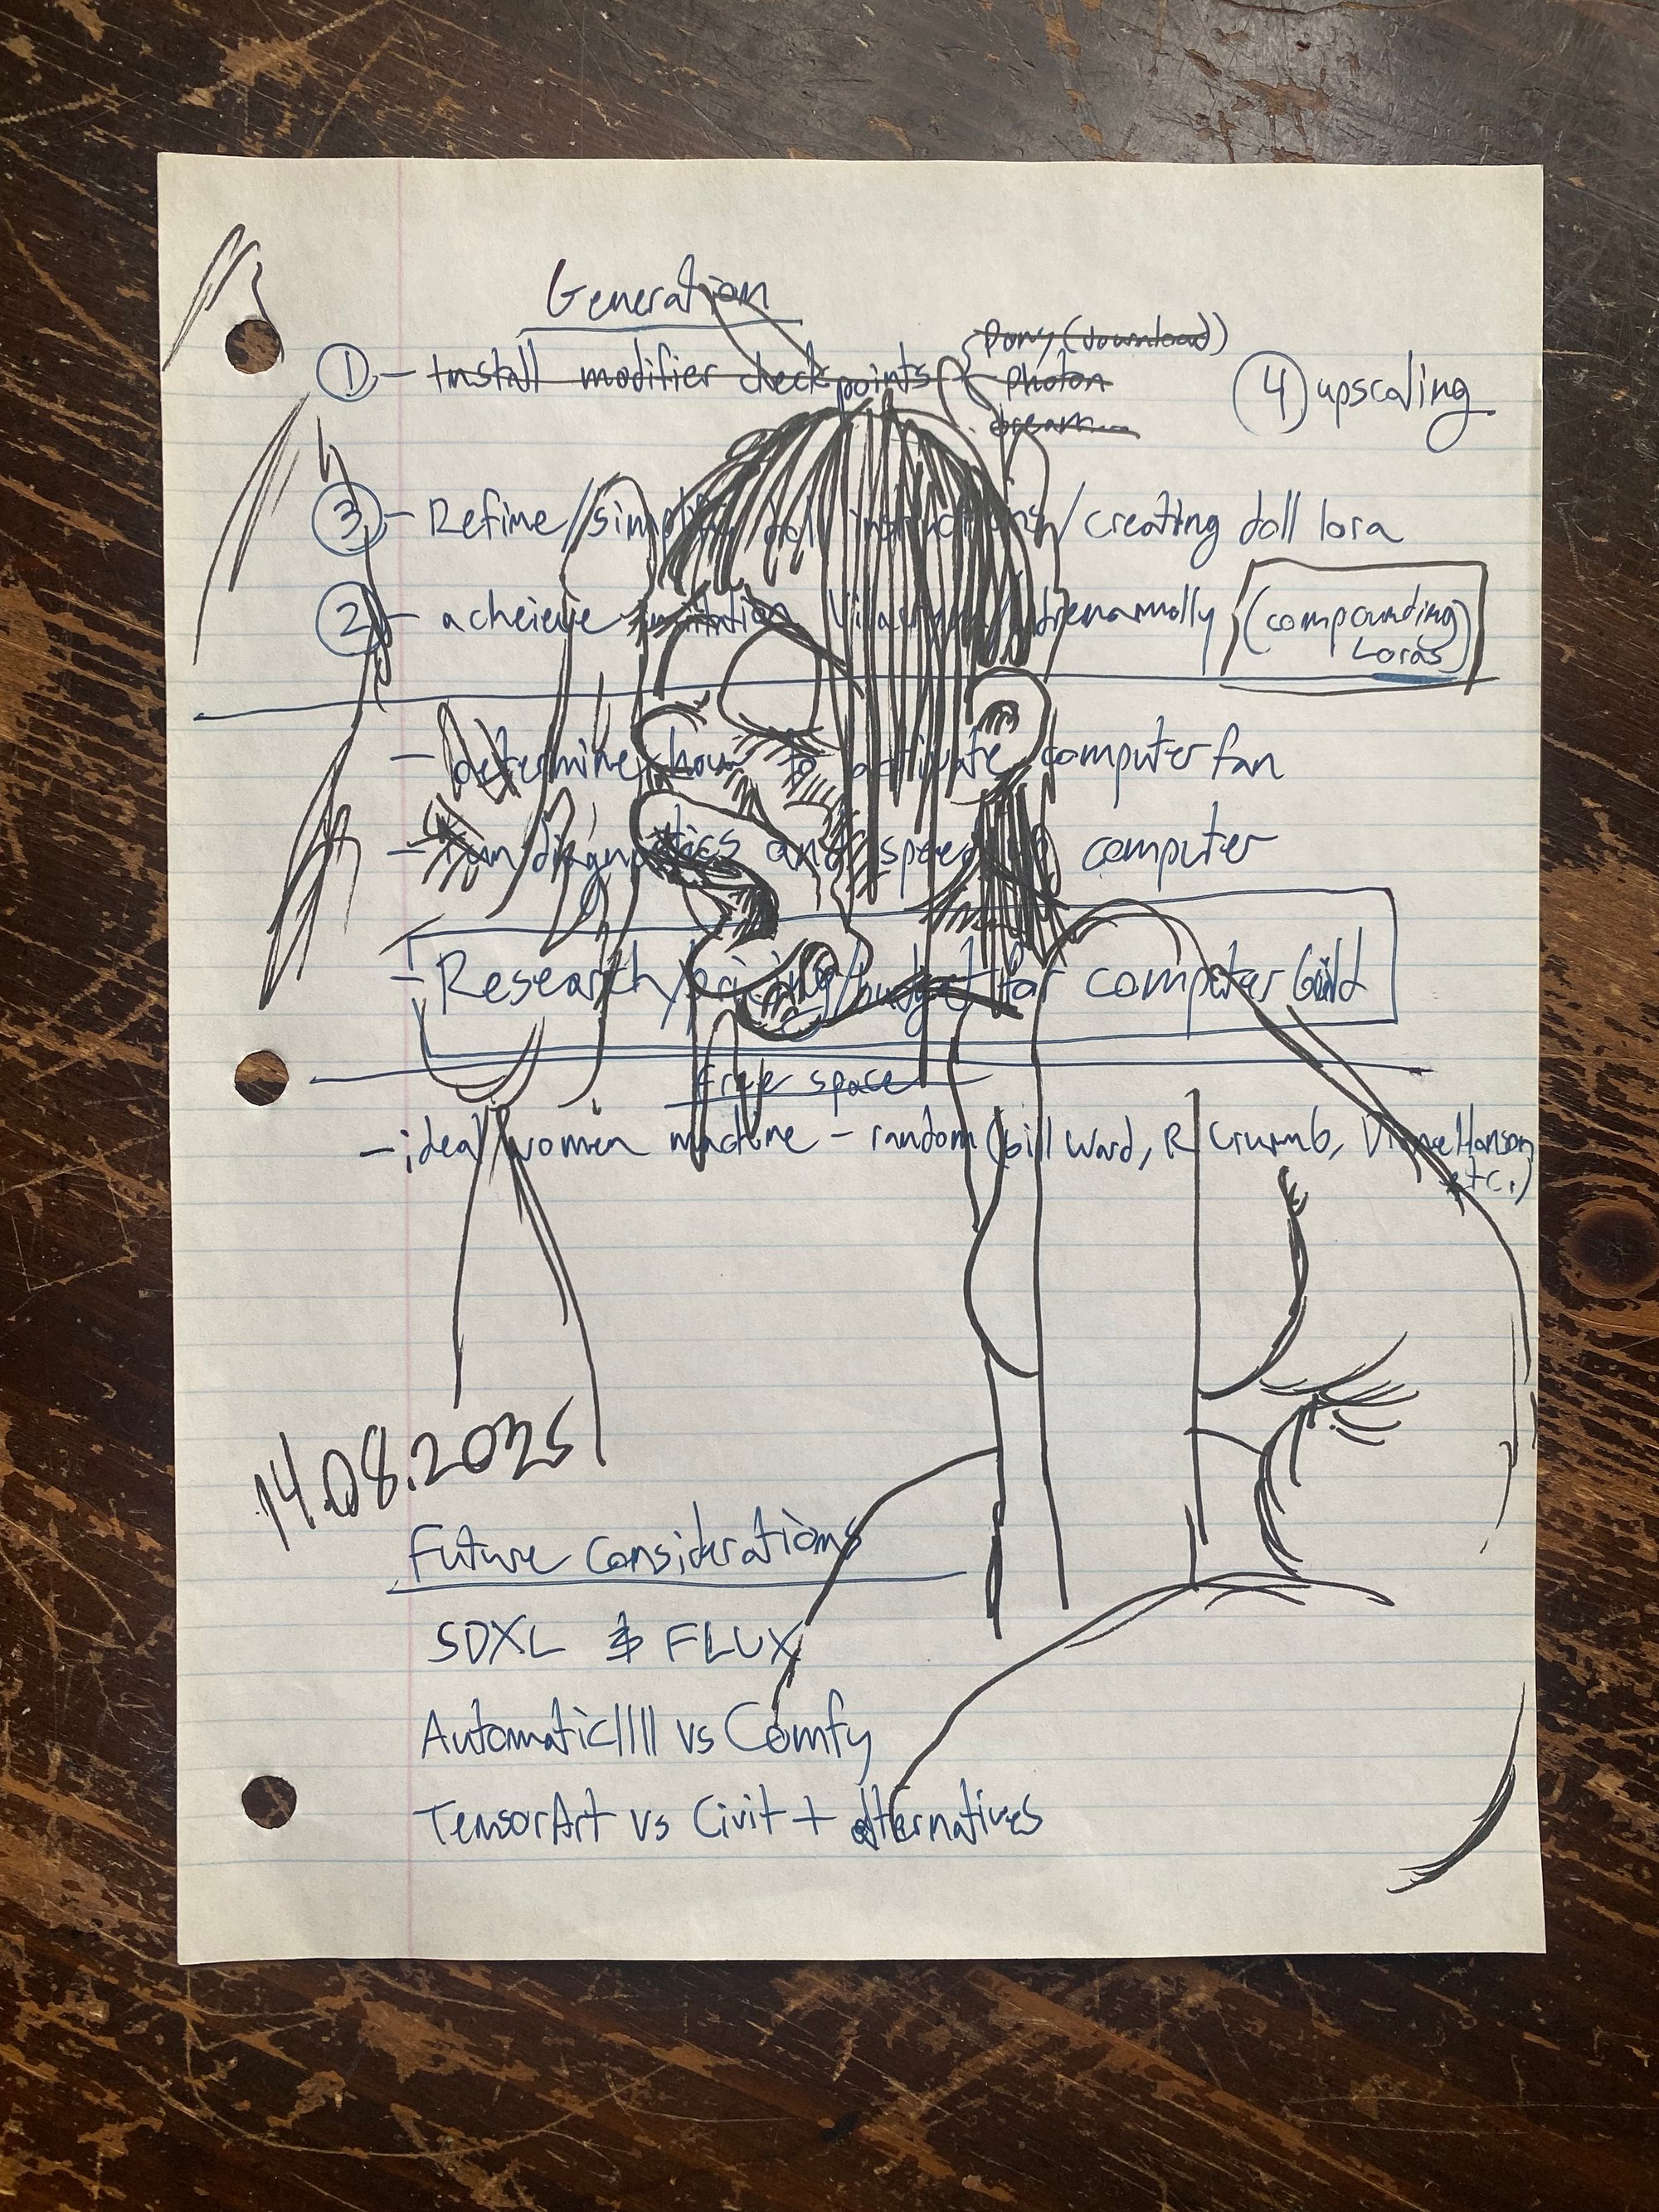 Generation
① - Install modifier checkpoints { Pony (download)
photon
dream...
④ upscaling
③ - Refine/simplify doll instructions/creating doll lora
② - acheieve (compounding
Loras)
- determine how to activate computer fan
- run diagnostics and speed up computer
- Research/pricing/budget for computer build
free space
- ideal women machine - random (bill Ward, R Crumb, Dianne Hanson,
etc.)
14.08.2025
Future Considerations
SDXL & FLUX
Automatic1111 vs Comfy
TensorArt vs Civit + alternatives